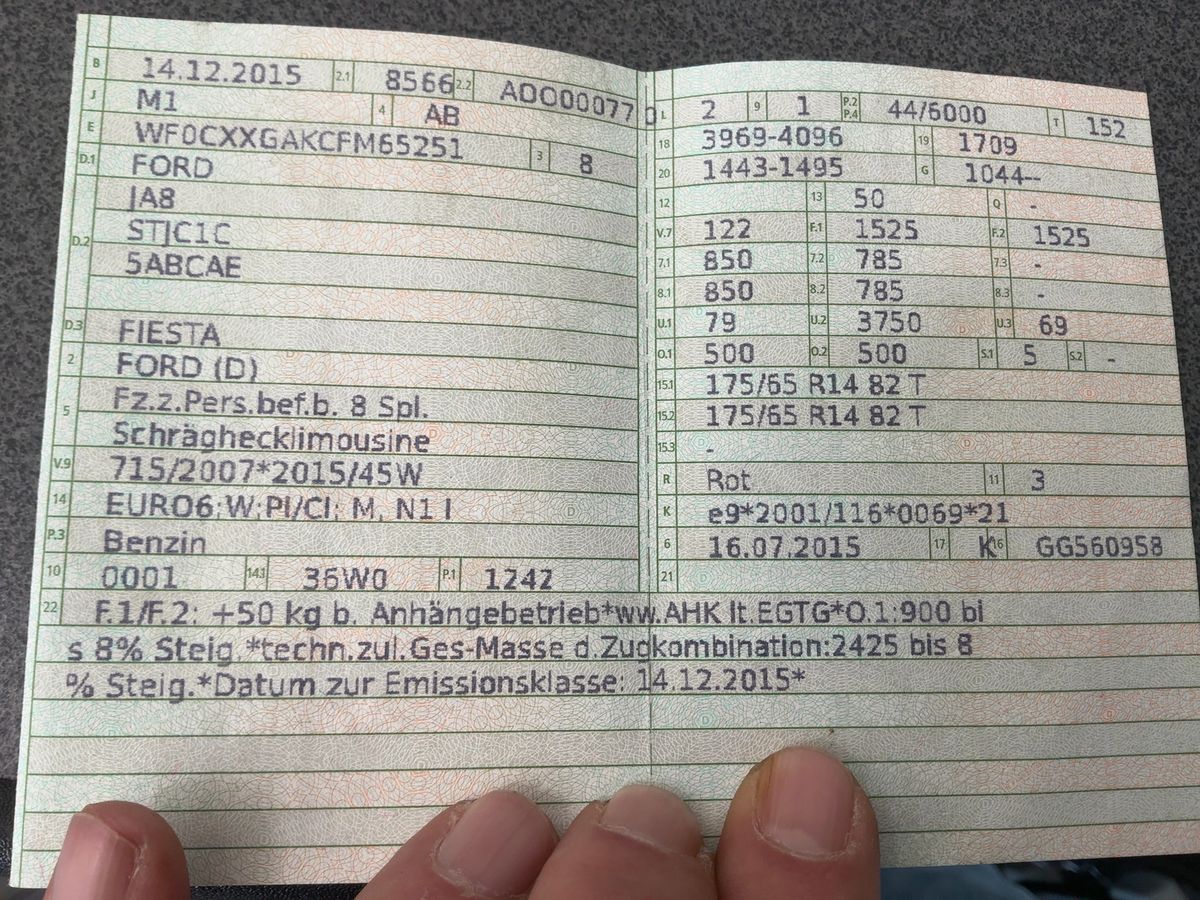 B 14.12.2015 2.1 8566 2.2 ADO000770
J M1 4 AB
E WF0CXXGAKCFM65251 3 8
D.1 FORD
D.2 JA8
STJC1C
5ABCAE
D.3 FIESTA
2 FORD (D)
5 Fz.z.Pers.bef.b. 8 Spl.
Schräghecklimousine
V.9 715/2007*2015/45W
14 EURO6;W;PI/CI; M, N1 I
P.3 Benzin
10 0001 14.1 36W0 P.1 1242
L 2 9 1 P.2 P.4 44/6000 T 152
18 3969-4096 19 1709
20 1443-1495 G 1044--
12 13 50 Q -
V.7 122 F.1 1525 F.2 1525
7.1 850 7.2 785 7.3 -
8.1 850 8.2 785 8.3 -
U.1 79 U.2 3750 U.3 69
O.1 500 O.2 500 S.1 5 S.2 -
15.1 175/65 R14 82 T
15.2 175/65 R14 82 T
15.3 -
R Rot 11 3
K e9*2001/116*0069*21
6 16.07.2015 17 K 16 GG560958
21
22 F.1/F.2: +50 kg b. Anhängebetrieb*ww.AHK lt.EGTG*O.1:900 bi
s 8% Steig.*techn.zul.Ges-Masse d.Zugkombination:2425 bis 8
% Steig.*Datum zur Emissionsklasse: 14.12.2015*